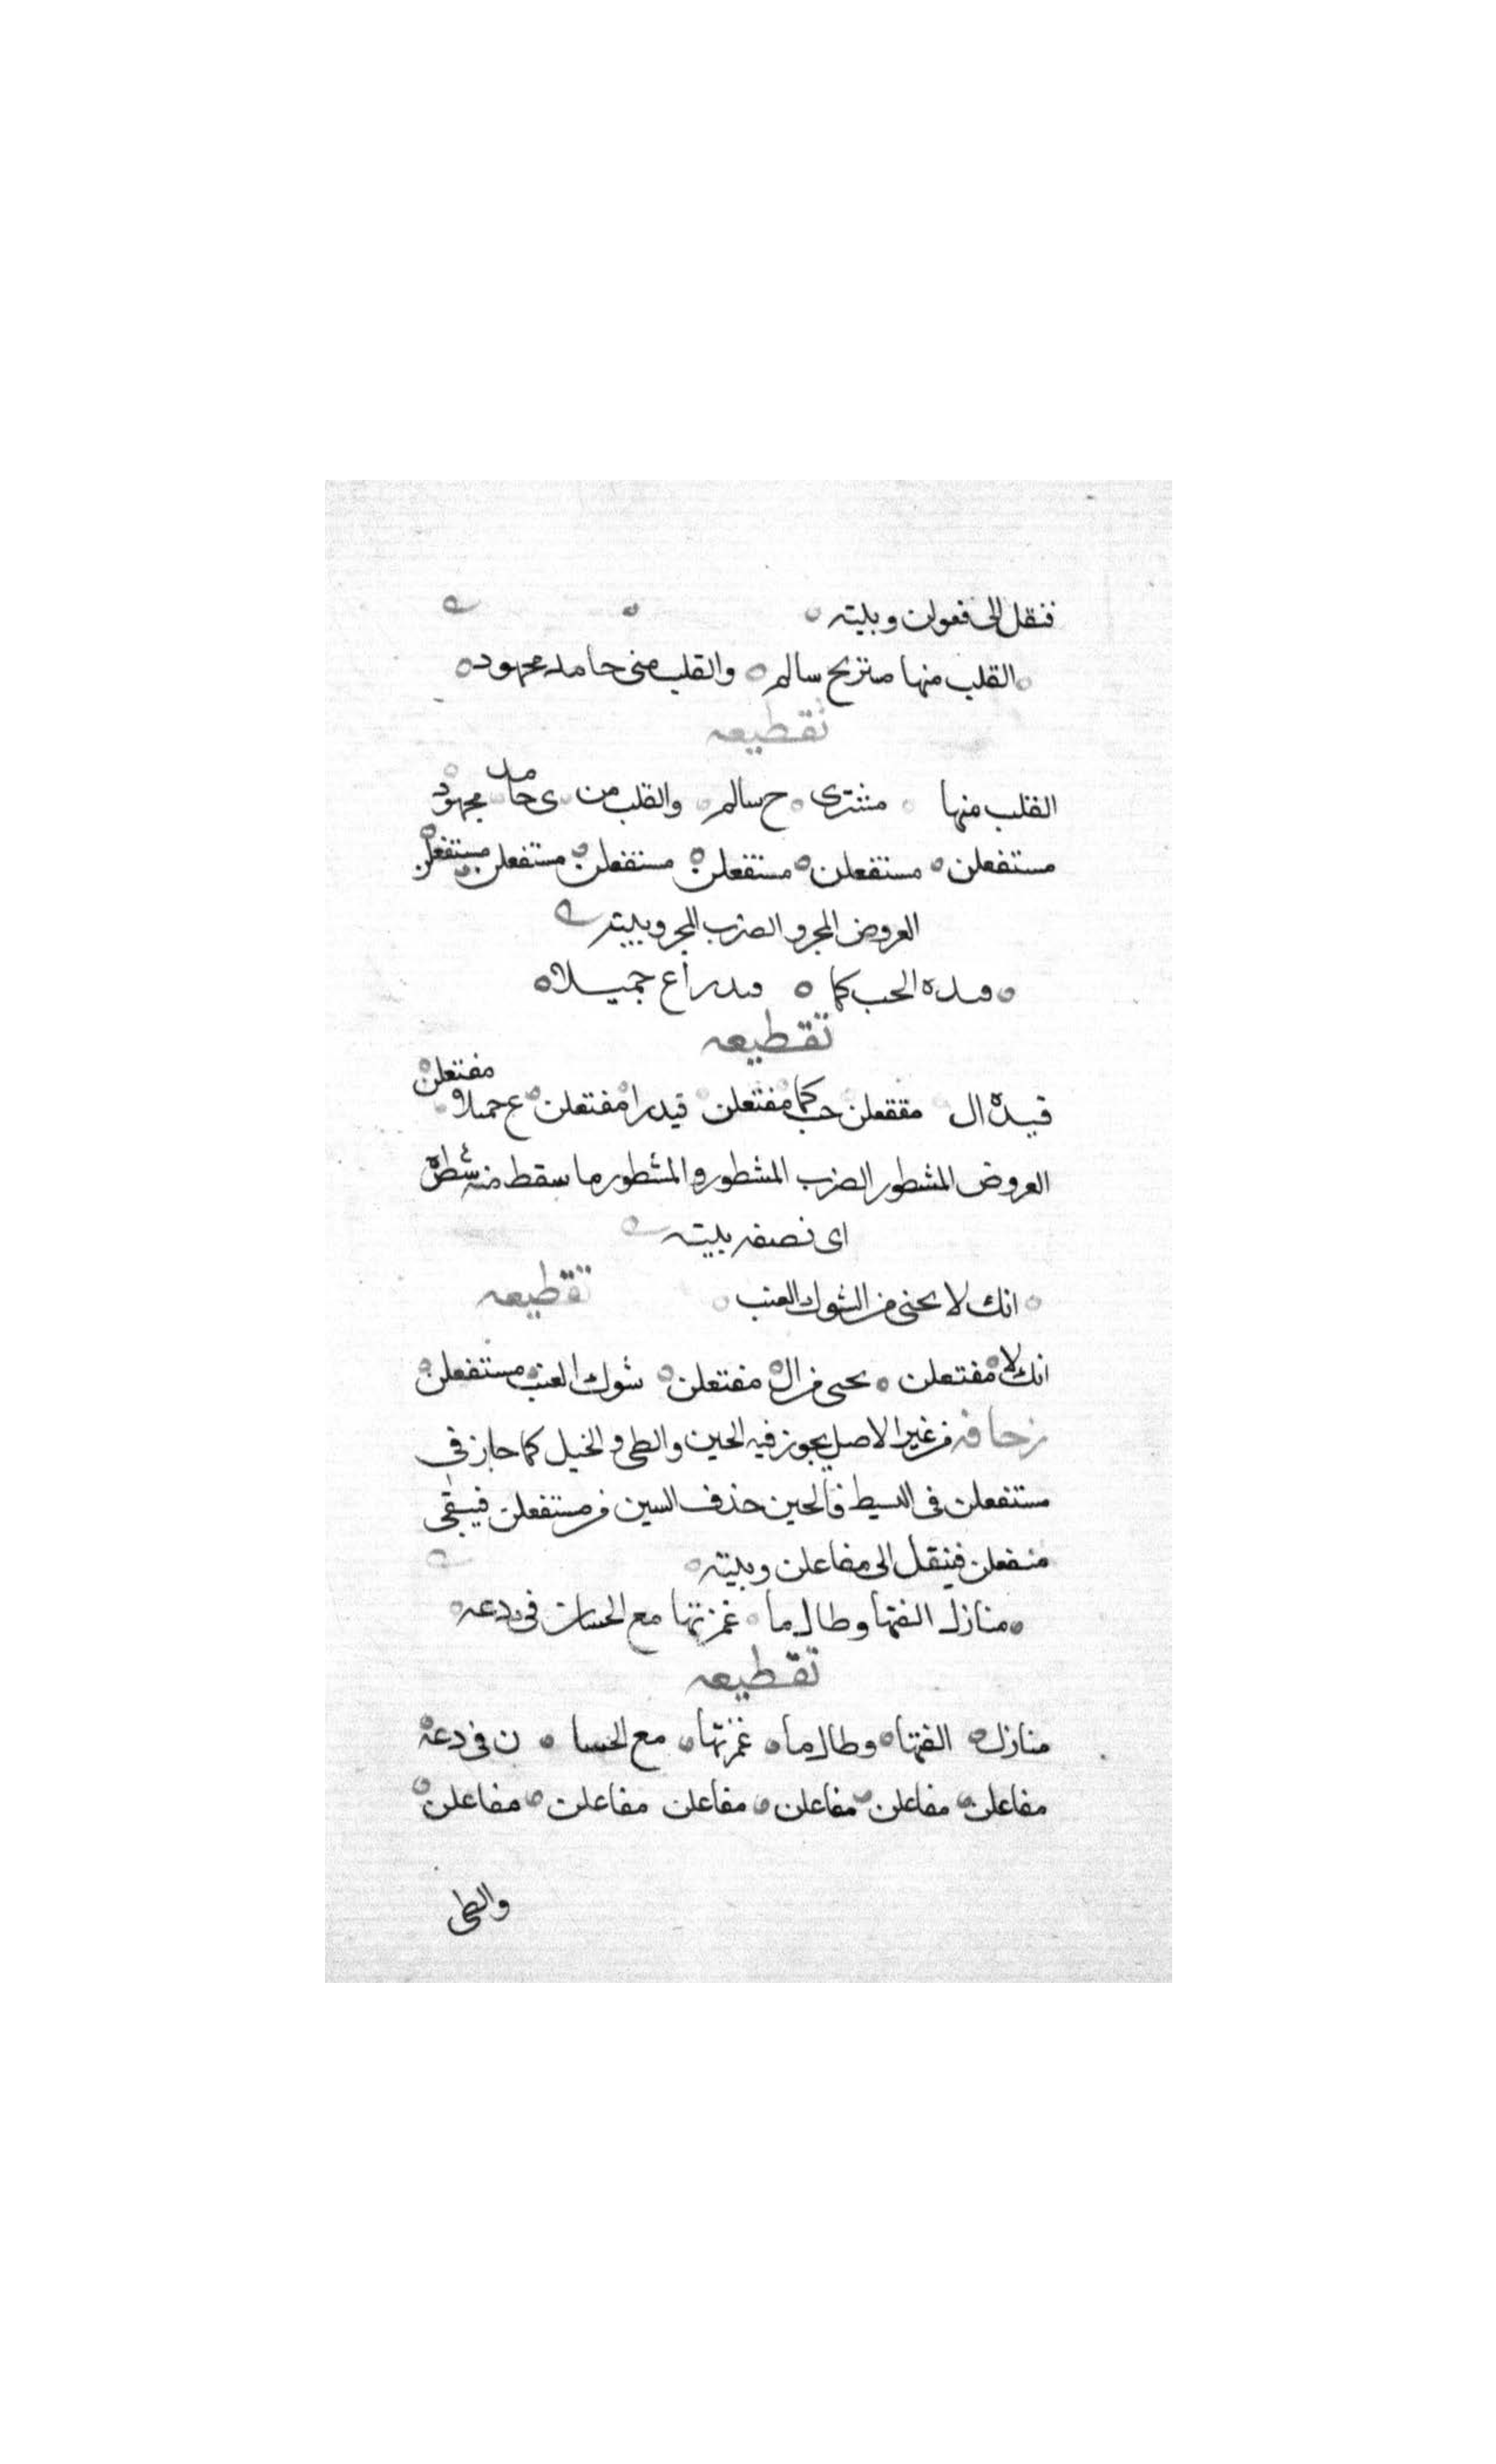 فنقل الى فعولن وبيته
القلب منها مستريح سالم والقلب منى جامد مجهود
تقطيعه
القلب منها مشترى ح سالم والقلب من ى جا مد مجهود
مستفعلن مستفعلن مستفعلن مستفعلن مستفعلن مستفعلن
العروض المجرو الضرب المجرو بيته
قيده الحب كما قيد راع جميلا
تقطيعه
قيده ال مفتعلن حب كما مفتعلن قيد را مفتعلن ع جميلا مفتعلن
العروض المشطور الضرب المشطور والمشطور ما سقط منه شطره
اى نصفه بيته
انك لا تجنى من الشوك العنب تقطيعه
انك لا مفتعلن تجنى من ال مفتعلن شوك العنب مستفعلن
زحافه من غير الاصل يجوز فيه الخبن والطى والخبل كما جاز فى
مستفعلن فى البسيط فالخبن حذف السين من مستفعلن فيبقى
متفعلن فينقل الى مفاعلن وبيته
منازل الفتها وطال ما عمرتها مع الحسان فى دعه
تقطيعه
منازل الفتها وطال ما عمرتها مع الحسا ن فى دعه
مفاعلن مفاعلن مفاعلن مفاعلن مفاعلن مفاعلن
والطى